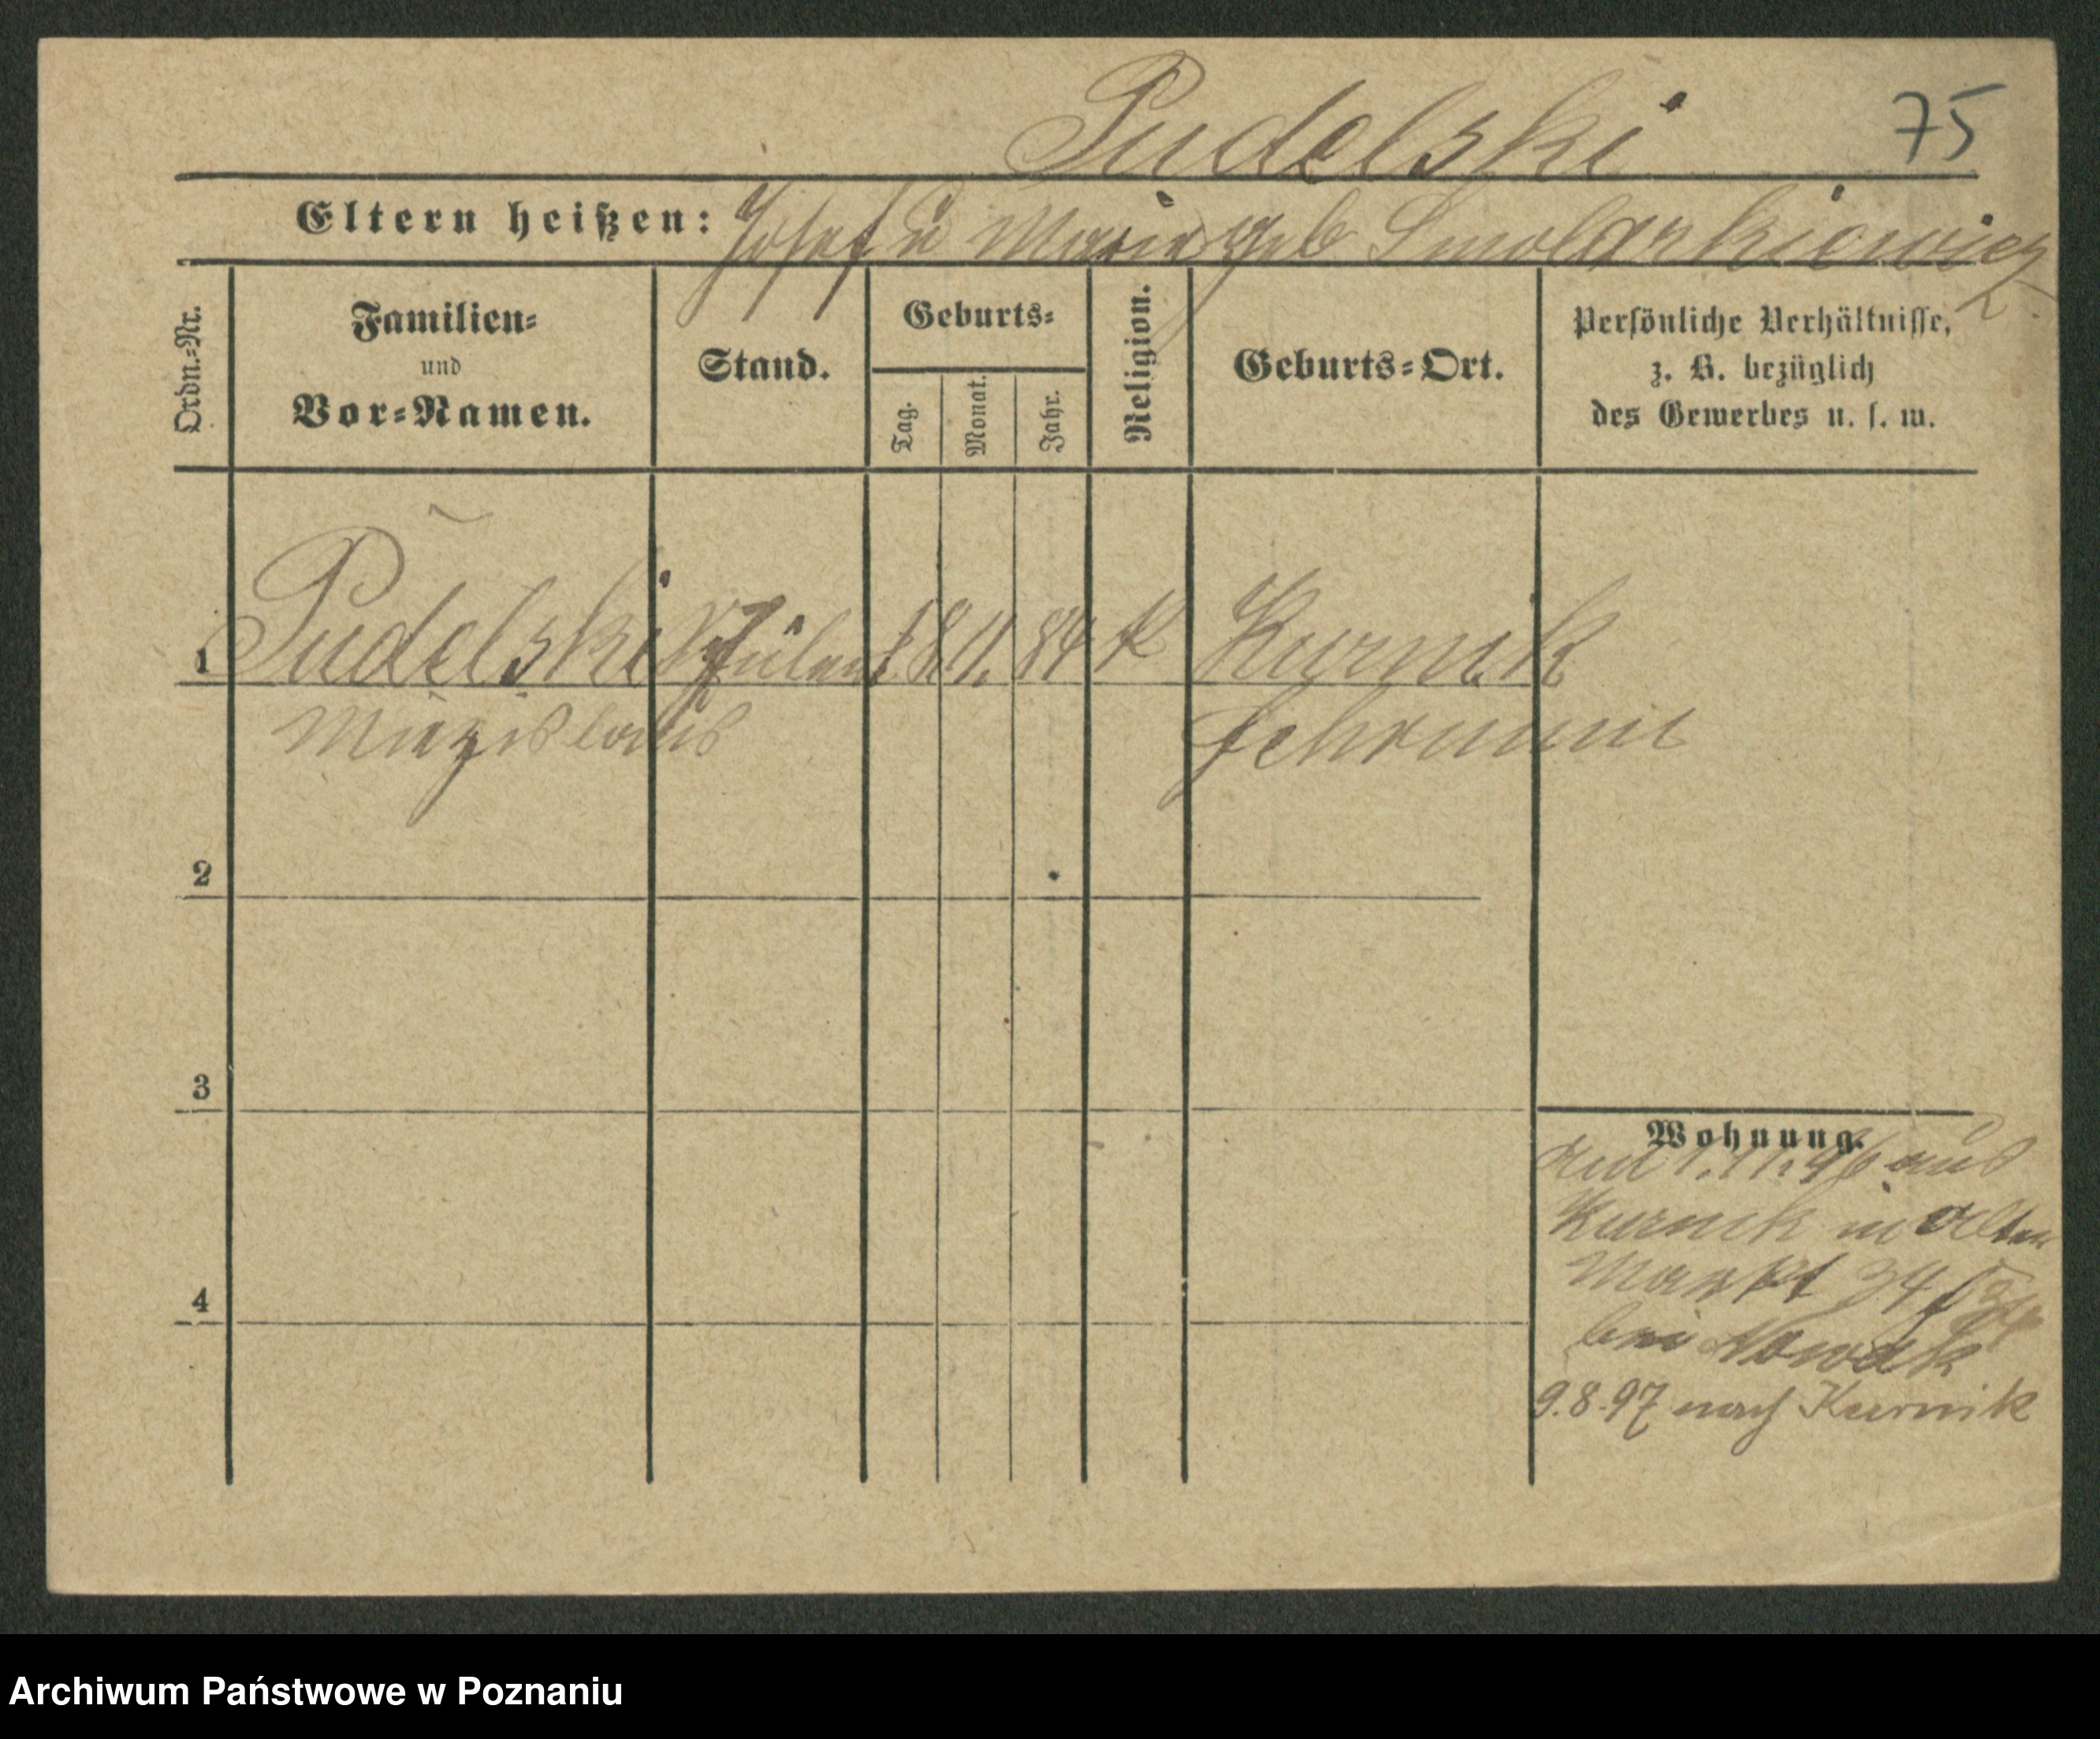 Pudelski 75
Eltern heißen: Josef u Marie geb Smolarkiewicz
Ordn.-Nr.
Familien-
und
Vor-Namen.
Stand.
Geburts-
Tag.
Monat.
Jahr.
Religion.
Geburts-Ort.
Persönliche Verhältnisse,
z. B. bezüglich
des Gewerbes u. s. w.
1 Pudelski Schüler 18 11. 84 K Kurnik
Miezislaus Schrimm
2
3
4
Wohnung.
1.11.96 aus
Kurnik in Alten
Markt 34
bei Nowak
9.8.97 nach Kurnik
Archiwum Państwowe w Poznaniu